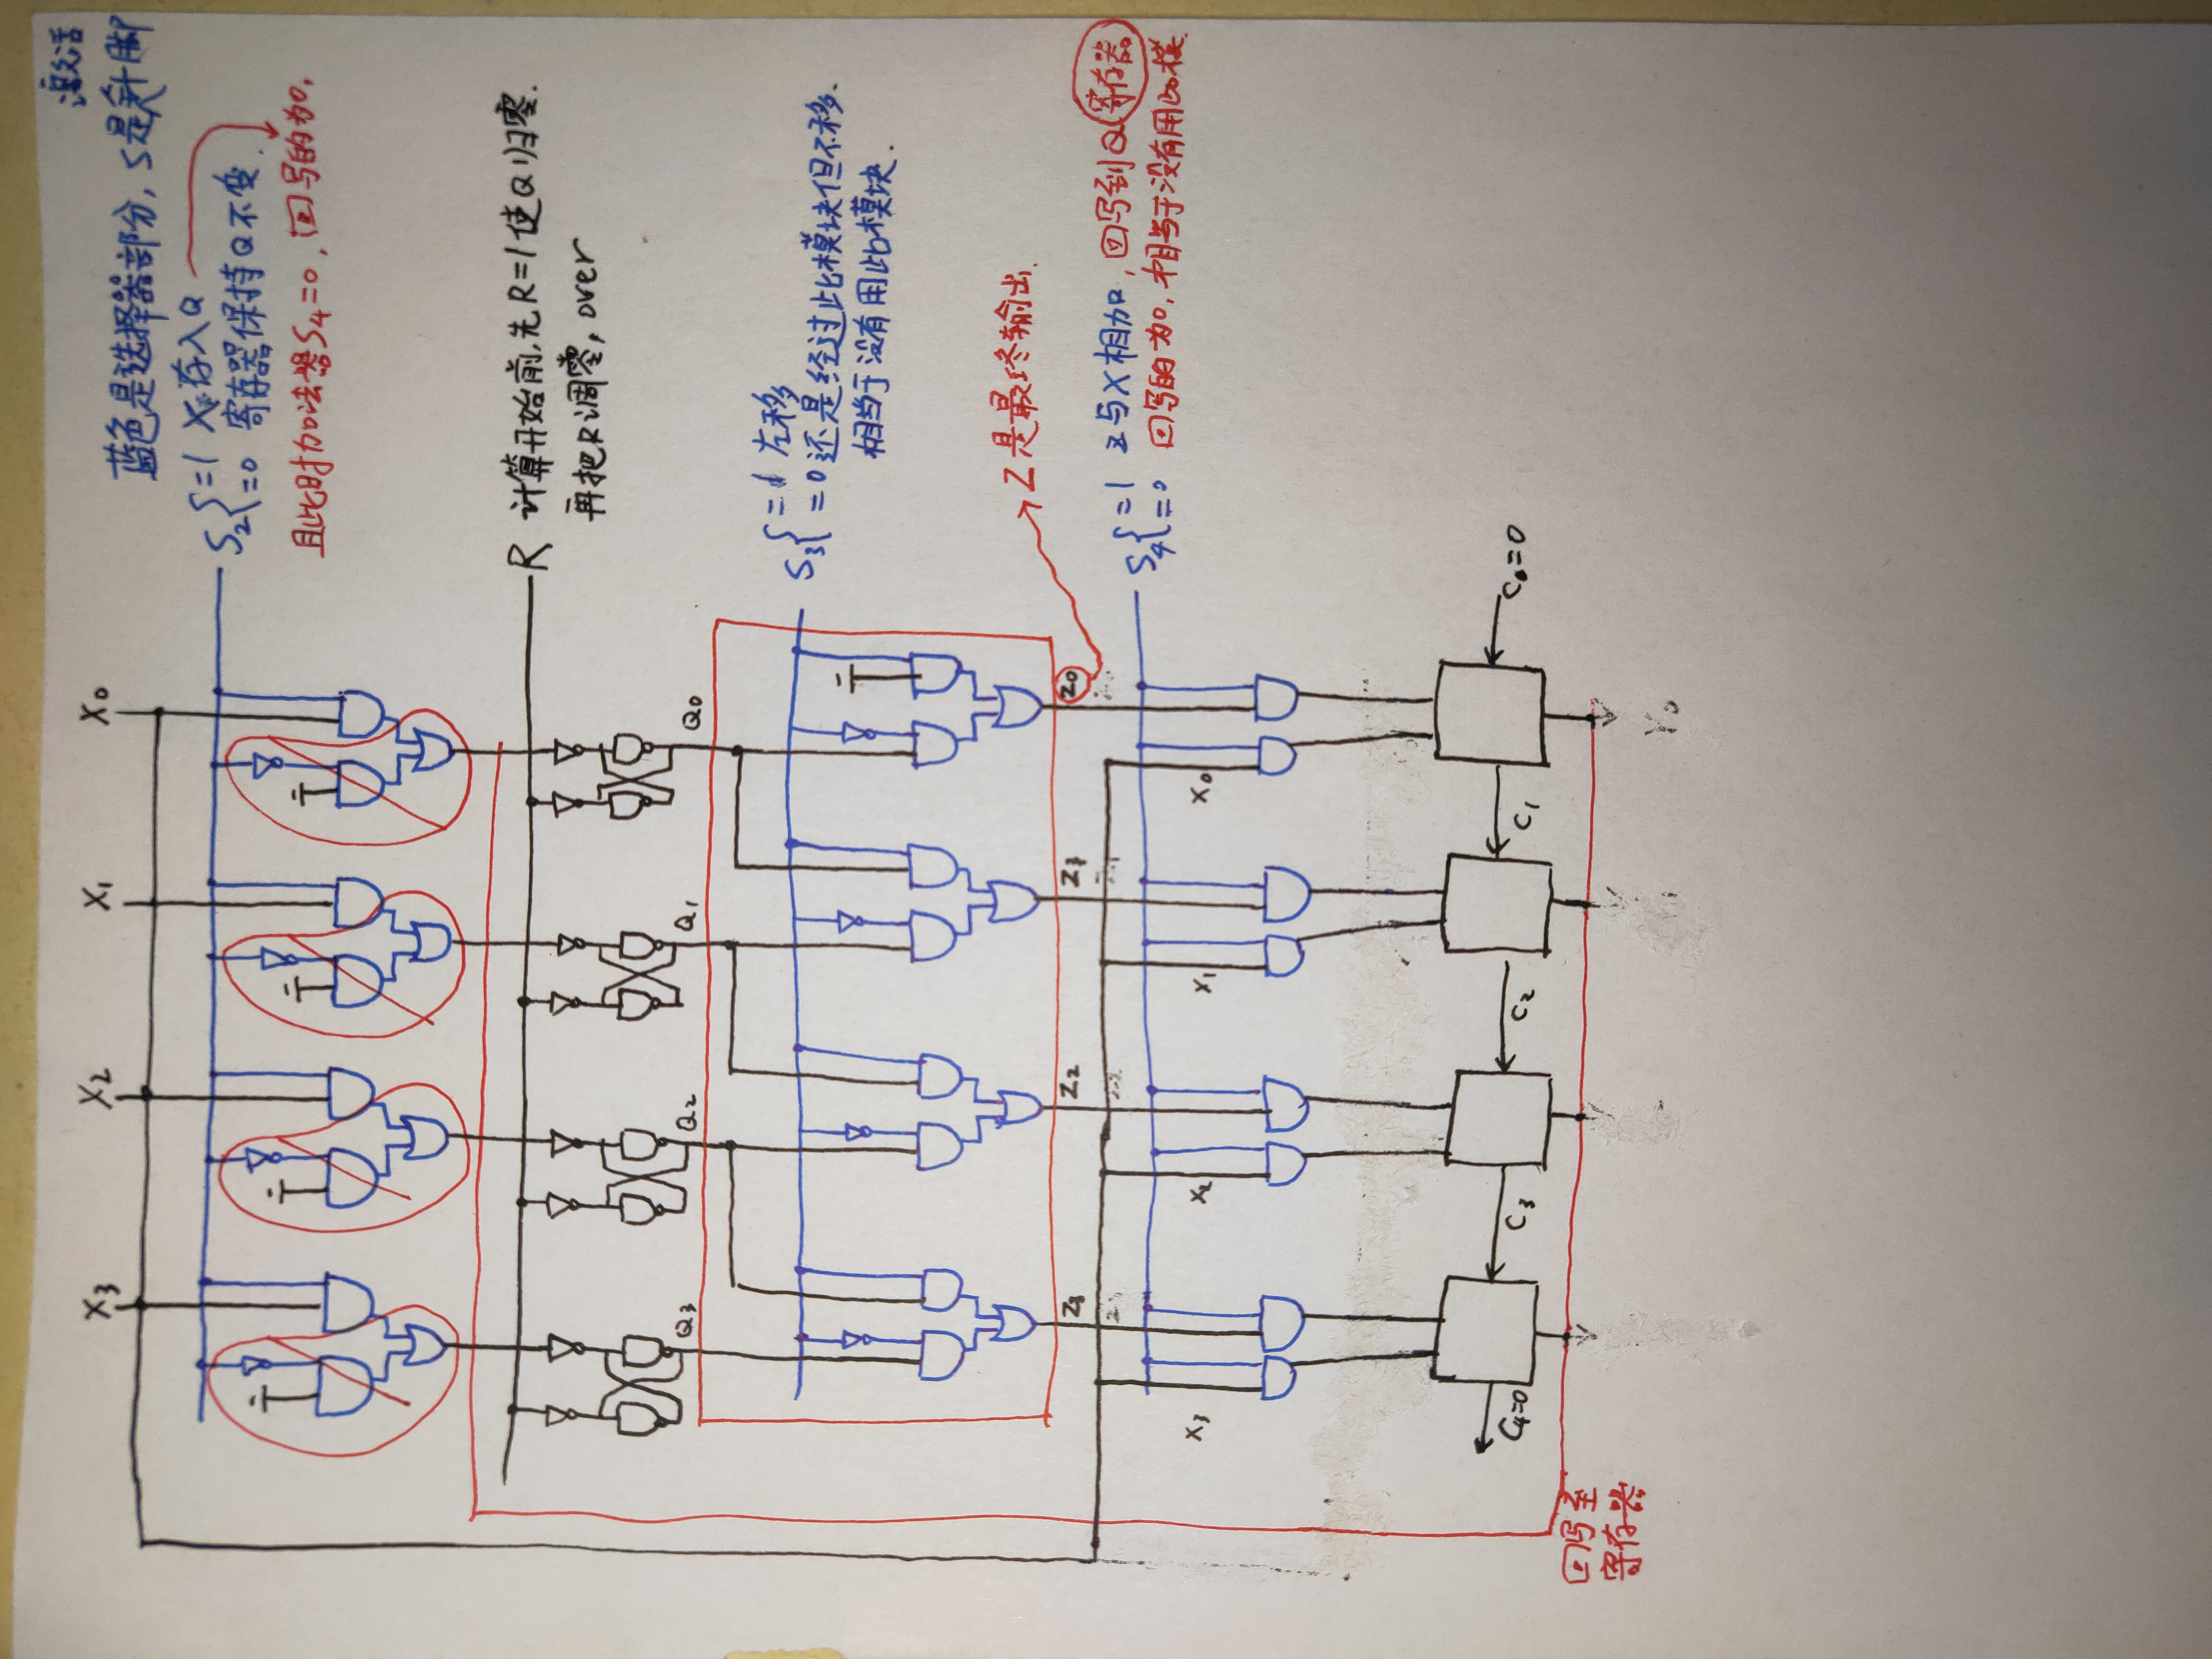 激活
X3 X2 X1 X0
蓝色是选择器部分，S是针脚
S2 =1 X存入Q
=0 寄存器保持Q不变.
且此时加法器S4=0，回写的为0.
R 计算开始前,先R=1使Q归零.
再把R调零，over
Q3 Q2 Q1 Q0
S3 =1 左移
=0 还是经过此模块但不移.
相当于没有用此模块.
Z是最终输出.
Z3 Z2 Z0
S4 =1 Z与X相加，回写到Q寄存器
=0 回写的为0，相当于没有用此模.
X3 X2 X1 X0
C4=0 C3 C2 C1 C0=0
回写至
寄存器
Y0